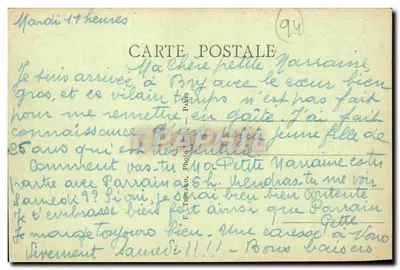 Mardi 19 heures
94
CARTE POSTALE
Ma chère petite Marraine
Je suis arrivée à Bry avec le cœur bien
gros, et ce vilain temps n'est pas fait
pour me remettre en gaîté. J'ai fait
connaissance jeune fille de
25 ans qui est
Comment vas-tu Ma Petite Marraine es tu
partie avec Parrain à 6 h. Viendras-tu me voir
samedi ?? Si oui, je serai bien bien contente
Je t'embrasse bien fort ainsi que Parrain
Gette
Je mange toujours bien. Une caresse à
Vivement Samedi !!!! - Bons baisers